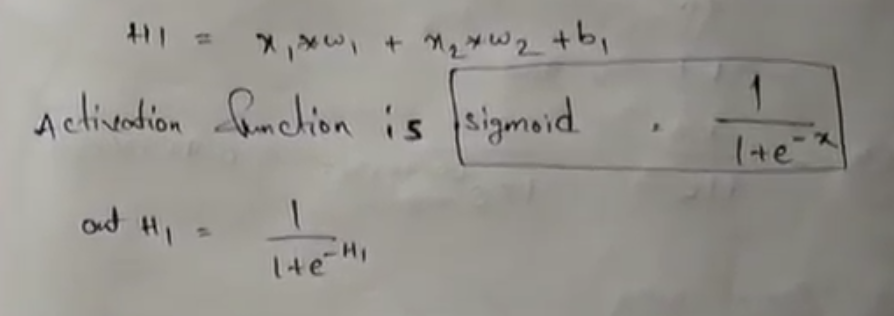 H1 = x₁*w₁ + x₂*w₂ + b₁
Activation function is sigmoid . 1/(1+e^-x)
out H₁ = 1/(1+e^-H₁)